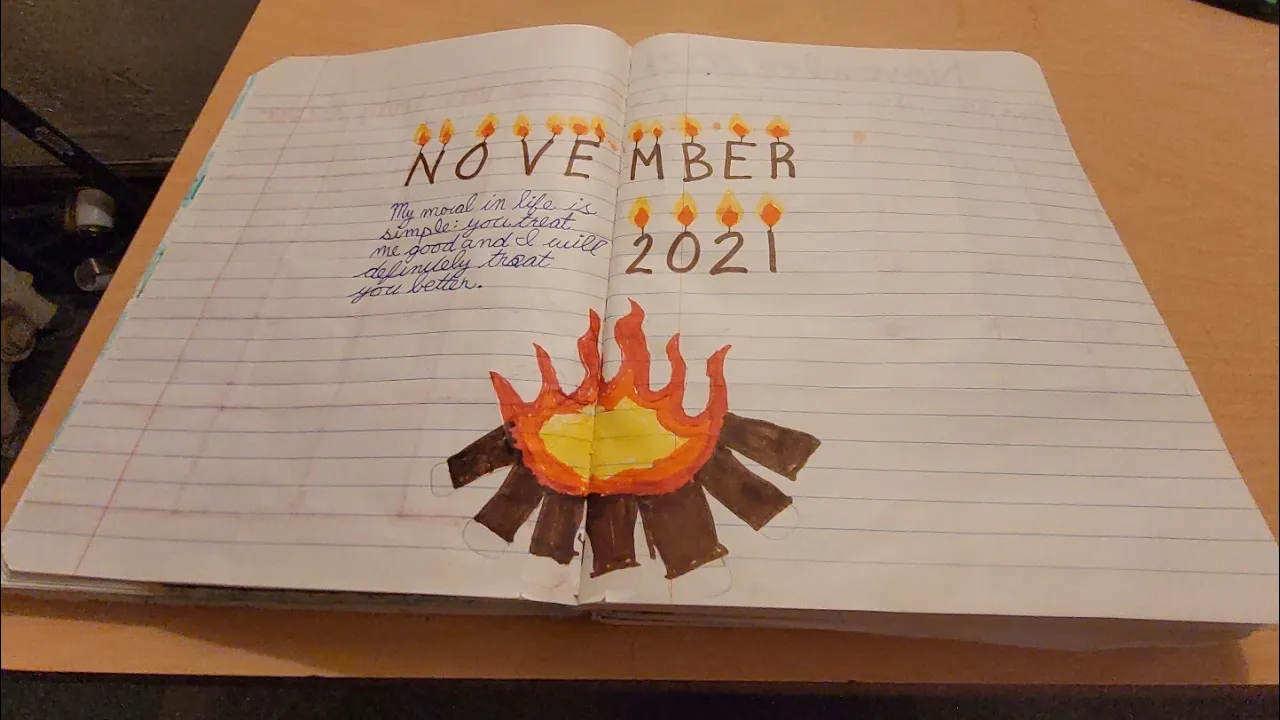 NOVEMBER
2021
My moral in life is
simple: you treat
me good and I will
definitely treat
you better.